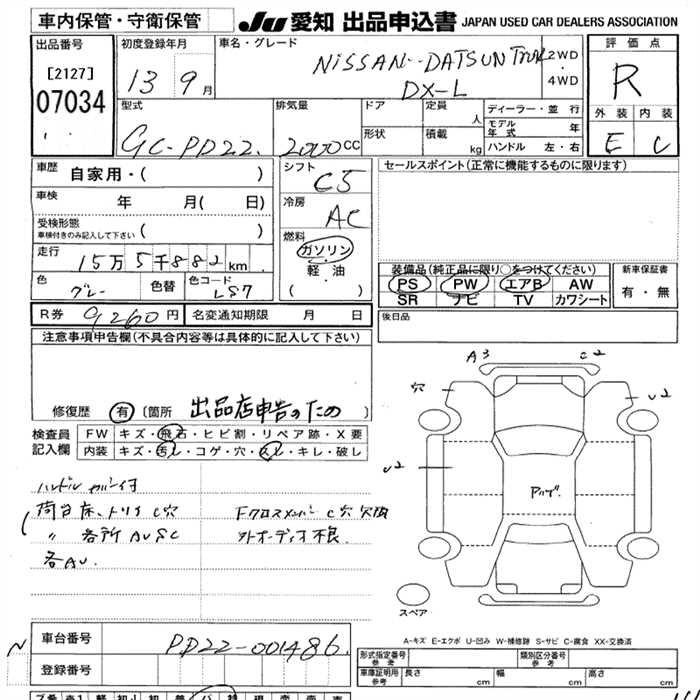 車内保管・守衛保管
JU 愛知 出品申込書 JAPAN USED CAR DEALERS ASSOCIATION
出品番号
[2127]
07034
初度登録年月
13 9月
車名・グレード
NISSAN DATSUN Truck
DX-L
2WD
・
4WD
評価点
R
外装 内装
E C
型式
GC-PD22.
排気量
2000cc
ドア
形状
定員 人
積載 kg
ディーラー・並行
モデル年式 年
ハンドル 左・右
車歴
自家用・( )
車検 年 月( 日)
受検形態
車検付きのみ記入して下さい ( )
走行
15万5千882 km
色
グレー
色替
色コード
LS7
シフト
C5
冷房
AC
燃料
ガソリン
軽・油
( ・ )
セールスポイント(正常に機能するものに限ります)
装備品(純正品に限り○をつけてください)
PS PW エアB AW
SR ナビ TV カワシート
新車保証書
有・無
R券 9,260円 名変通知期限 月 日
後日品
注意事項申告欄(不具合内容等は具体的に記入して下さい)
修復歴 有 〔箇所 出品店申告のため 〕
検査員
記入欄
FW キズ・飛石・ヒビ割・リペア跡・X要
内装 キズ・汚れ・コゲ・穴・スレ・キレ・破レ
ハンドルカバー付
荷台床、トリイC穴
〃 各所AUSC
各AU.
Fクロスメンバー C穴 欠損
外オーディオ不良.
A3 C2
穴
U2
U2
アッゲ.
スペア
A-キズ E-エクボ U-凹み W-補修跡 S-サビ C-腐食 XX-交換済
車台番号
PD22-001486.
登録番号
形式指定番号
参考
類別区分番号
参考
車庫証明用
参考
長さ cm 幅 cm 高さ cm